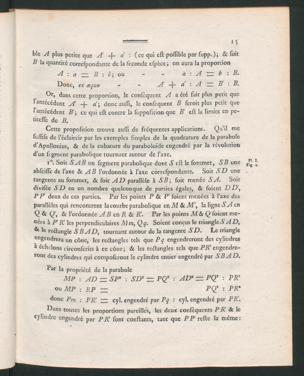 15
ble A plus petite que A' + a' : (ce qui est possible par supp.); & soit
B la quantité correspondante de la seconde espèce; on aura la proportion
A : a = B : b; ou - - a : A = b : B.
Donc, ex æquo - - A' + a' : A = B' : B.
Or, dans cette proportion, le conséquent A a été fait plus petit que
l'antécédent A' + a'; donc aussi, le conséquent B seroit plus petit que
l'antécédent B'; ce qui est contre la supposition que B' est la limite en pe-
titesse de B.
Cette proposition trouve aussi de fréquentes applications. Qu'il me
suffise de l'éclaircir par les exemples simples de la quadrature de la parabole
d'Apollonius, & de la cubature du paraboloide engendré par la révolution
d'un segment parabolique tournant autour de l'axe.
1°. Soit SAB un segment parabolique dont S est le sommet, SB une
Pl. I.
abscisse de l'axe & AB l'ordonnée à l'axe correspondante. Soit SD une
Fig. 2.
tangente au sommet, & soit AD parallèle à SB; soit menée SA. Soit
divisée SD en un nombre quelconque de parties égales, & soient DD',
PP' deux de ces parties. Par les points P & P' soient menées à l'axe des
parallèles qui rencontrent la courbe parabolique en M & M', la ligne SA en
Q & Q', & l'ordonnée AB en R & K. Par les points M & Q soient me-
nées à P'K les perpendiculaires Mm, Qq. Soient conçus le triangle SAD,
& le rectangle SBAD, tournant autour de la tangente SD. Le triangle
engendrera un cône, les rectangles tels que Pq engendreront des cylindres
à échelons circonscrits à ce cône; & les rectangles tels que PK engendre-
ront des cylindres qui composeront le cylindre entier engendré par SBAD.
Par la propriété de la parabole
MP : AD = SP² : SD² = PQ² : AD² = PQ² : PR²
ou MP : RP = PQ² : PR²
donc Pm : PK = cyl. engendré par Pq : cyl. engendré par PK.
Dans toutes les proportions pareilles, les deux conséquents PK & le
cylindre engendré par PK sont constants, tant que PP' reste la même: